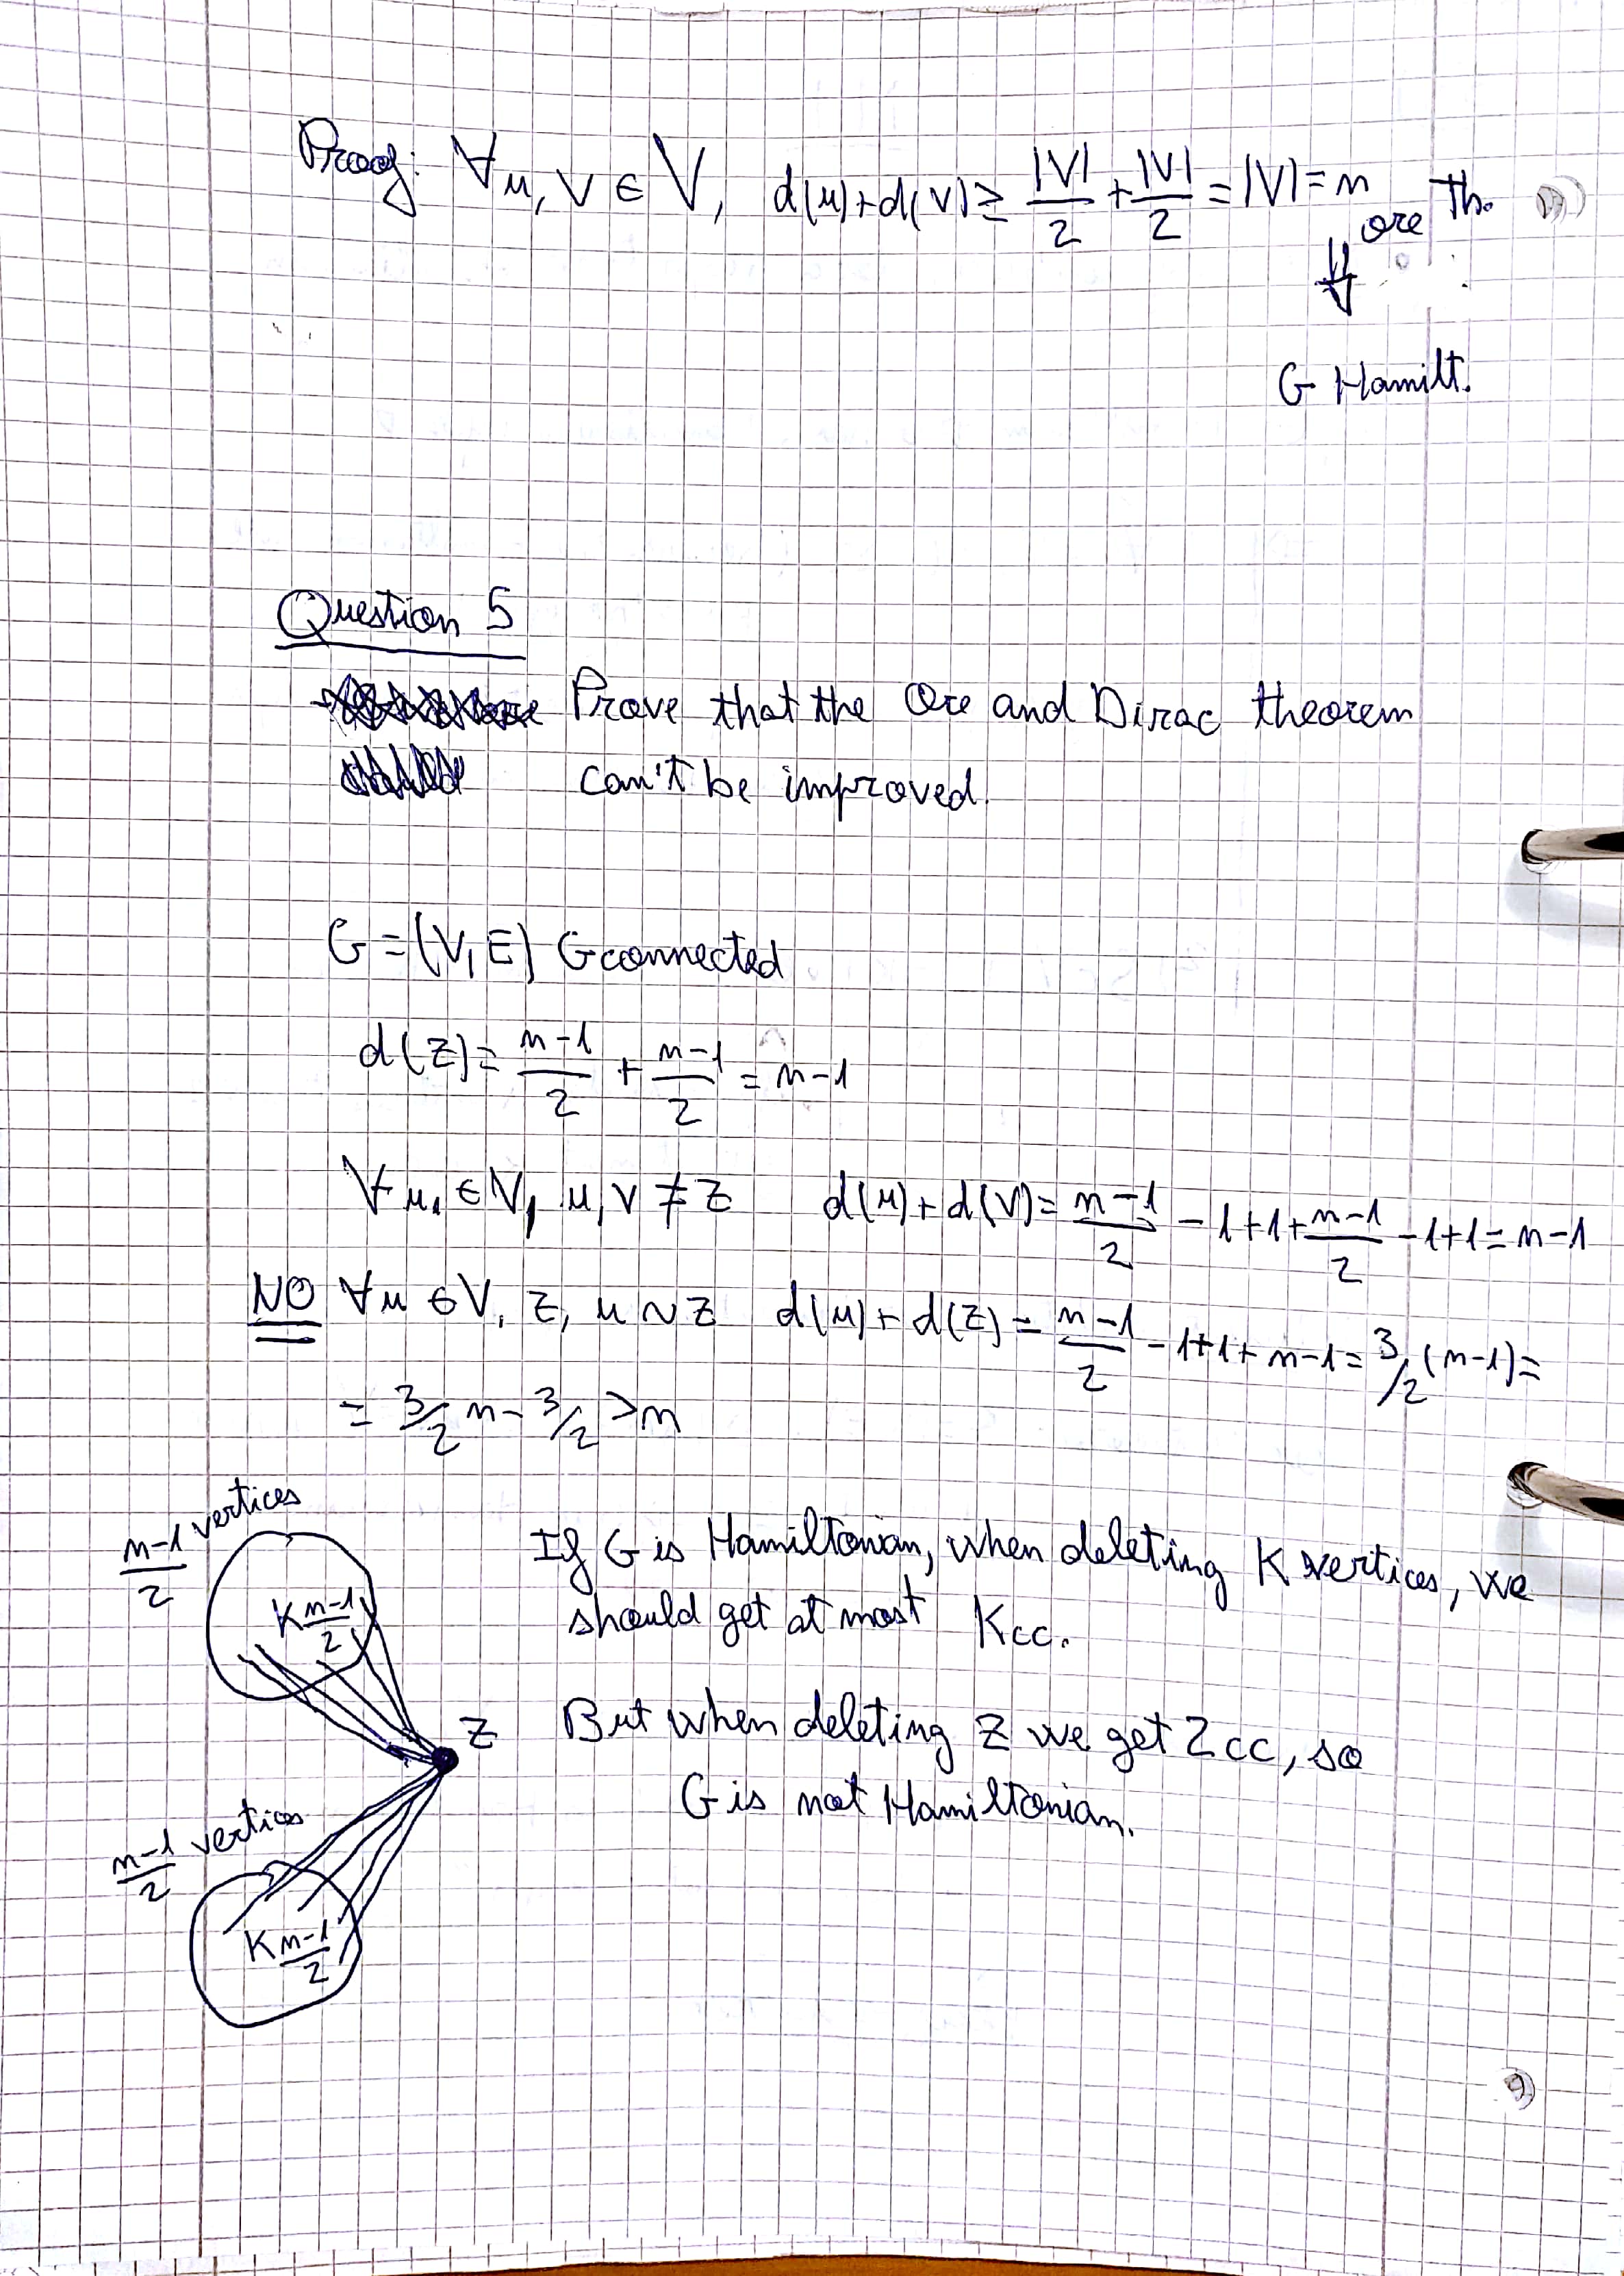 Proof: ∀u, v ∈ V, d(u)+d(v) ≥ |V|/2 + |V|/2 = |V| = n
ore Th.
⇓
G Hamilt.
Question 5
Prove that the Ore and Dirac theorem
can't be improved.
G = (V, E) G connected
d(z) = n-1/2 + n-1/2 = n-1
∀ u, ∈ V, u, v ≠ z d(u) + d(v) = n-1/2 - 1+1 + n-1/2 - 1+1 = n-1
NO ∀u ∈ V, z, u ~ z d(u) + d(z) = n-1/2 - 1+1 + n-1 = 3/2 (n-1) =
= 3/2 n - 3/2 > n
n-1/2 vertices
K n-1/2
If G is Hamiltonian, when deleting K vertices, we
should get at most K cc.
z
But when deleting z we get 2 cc, so
G is not Hamiltonian.
n-1/2 vertices
K n-1/2
9)